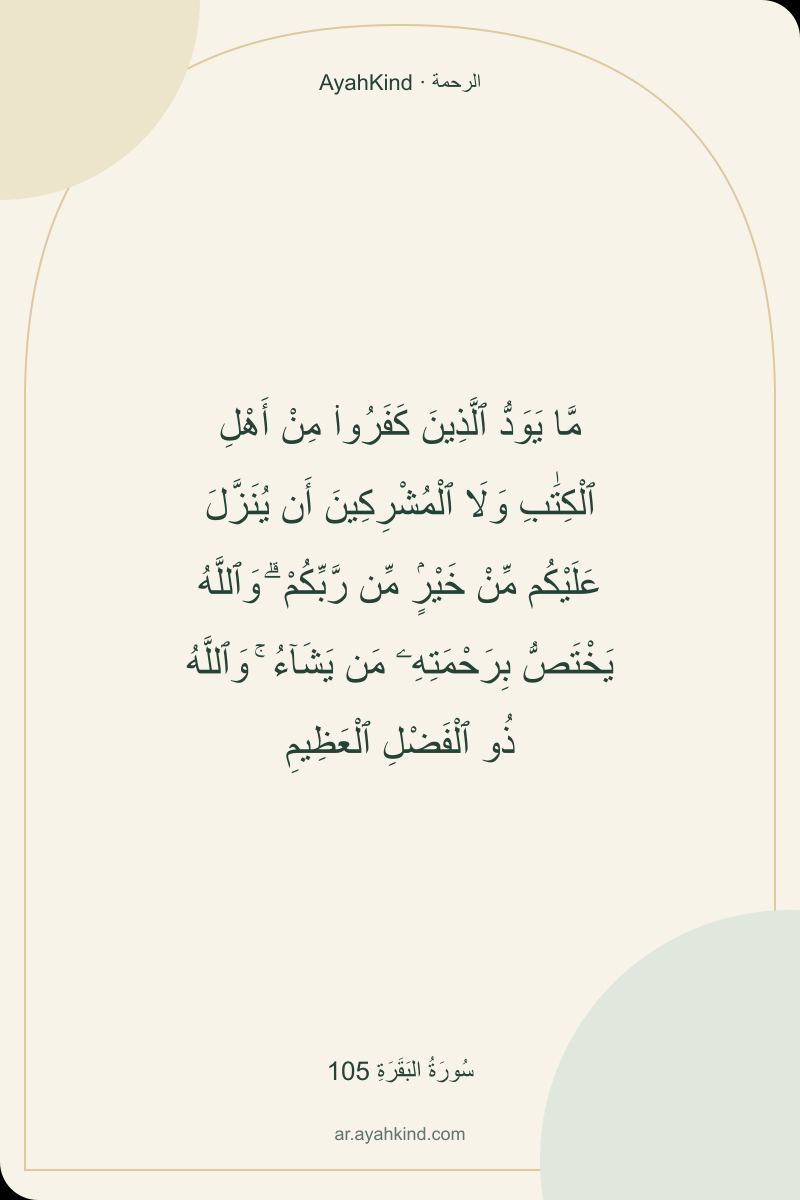 AyahKind · الرحمة
مَّا يَوَدُّ ٱلَّذِينَ كَفَرُوا۟ مِنْ أَهْلِ
ٱلْكِتَٰبِ وَلَا ٱلْمُشْرِكِينَ أَن يُنَزَّلَ
عَلَيْكُم مِّنْ خَيْرٍۢ مِّن رَّبِّكُمْ ۗ وَٱللَّهُ
يَخْتَصُّ بِرَحْمَتِهِۦ مَن يَشَآءُ ۚ وَٱللَّهُ
ذُو ٱلْفَضْلِ ٱلْعَظِيمِ
سُورَةُ البَقَرَةِ 105
ar.ayahkind.com